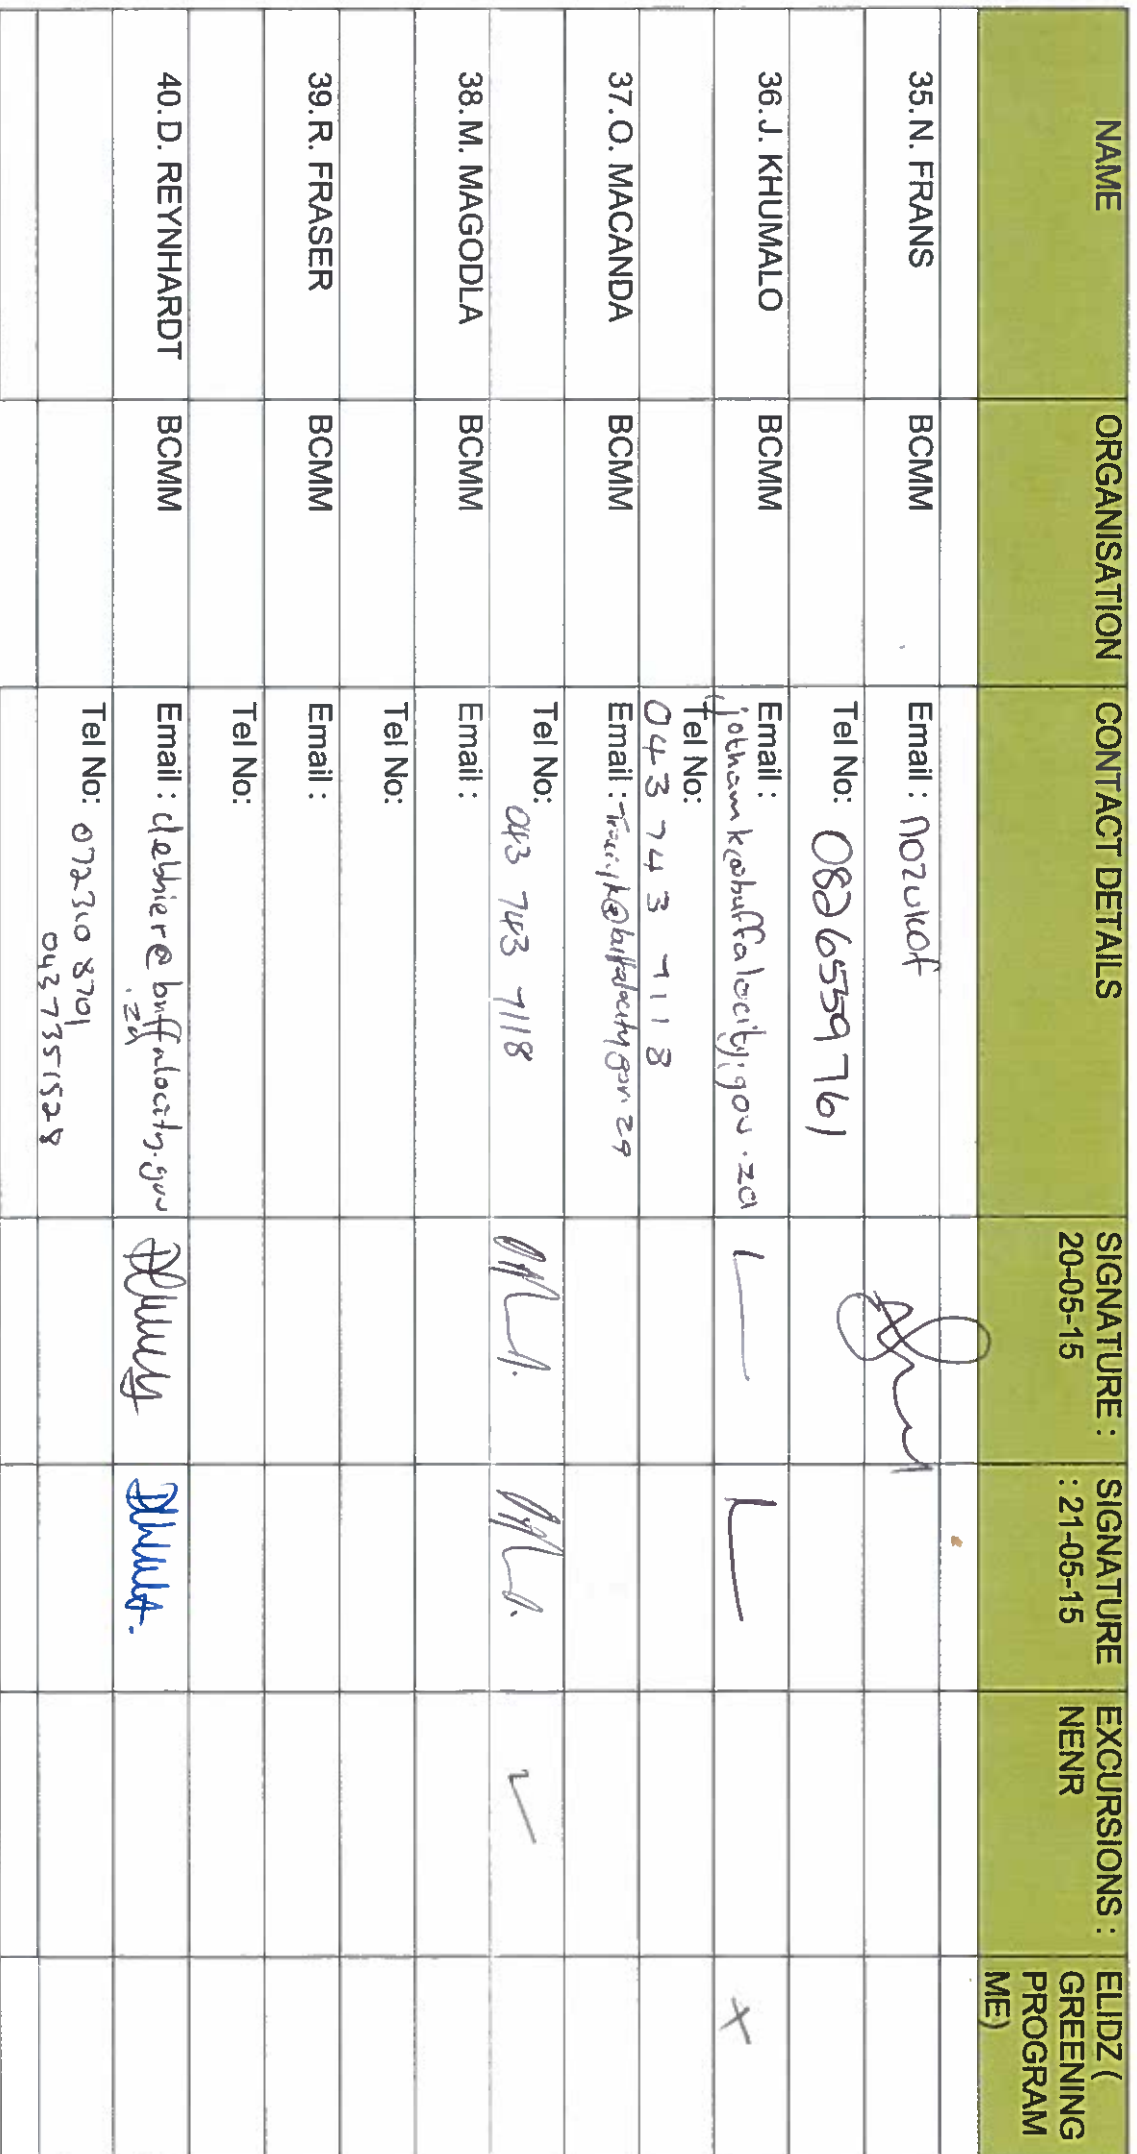 NAME ORGANISATION CONTACT DETAILS SIGNATURE : 20-05-15 SIGNATURE : 21-05-15 EXCURSIONS : NENR ELIDZ ( GREENING PROGRAM ME)
35. N. FRANS BCMM Email : nozukof
Tel No: 0826559761
36. J. KHUMALO BCMM Email :
jothamk@buffalocity.gov.za
Tel No:
043 743 7118
37. O. MACANDA BCMM Email :
Tel No: 043 743 7118
38. M. MAGODLA BCMM Email :
Tel No:
39. R. FRASER BCMM Email :
Tel No:
40. D. REYNHARDT BCMM Email : debbier@buffalocity.gov
.za
Tel No: 072310 8701
043 7351528